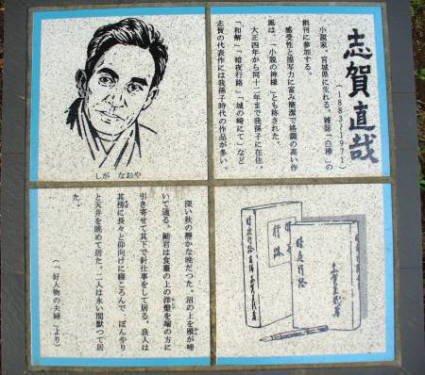 志賀直哉
(1883〜1971)
小説家。宮城県に生れる。雑誌「白樺」の
創刊に参加する。
感受性と描写力に富み簡潔で格調の高い作
風は、「小説の神様」とも称された。
大正四年から同十二年まで我孫子に在住。
「和解」「暗夜行路」「城の崎にて」など
志賀の代表作には我孫子時代の作品が多い。
しが なおや
深い秋の静かな晩だつた。沼の上を雁が啼
いて通る。細君は食台の上の洋燈を端の方に
引き寄せて其下で針仕事をして居る。良人は
其傍に長々と仰向けに寝ころんで、ぼんやり
と天井を眺めて居た。二人は永い間黙つて居
た。
(「好人物の夫婦」より)
暗夜行路